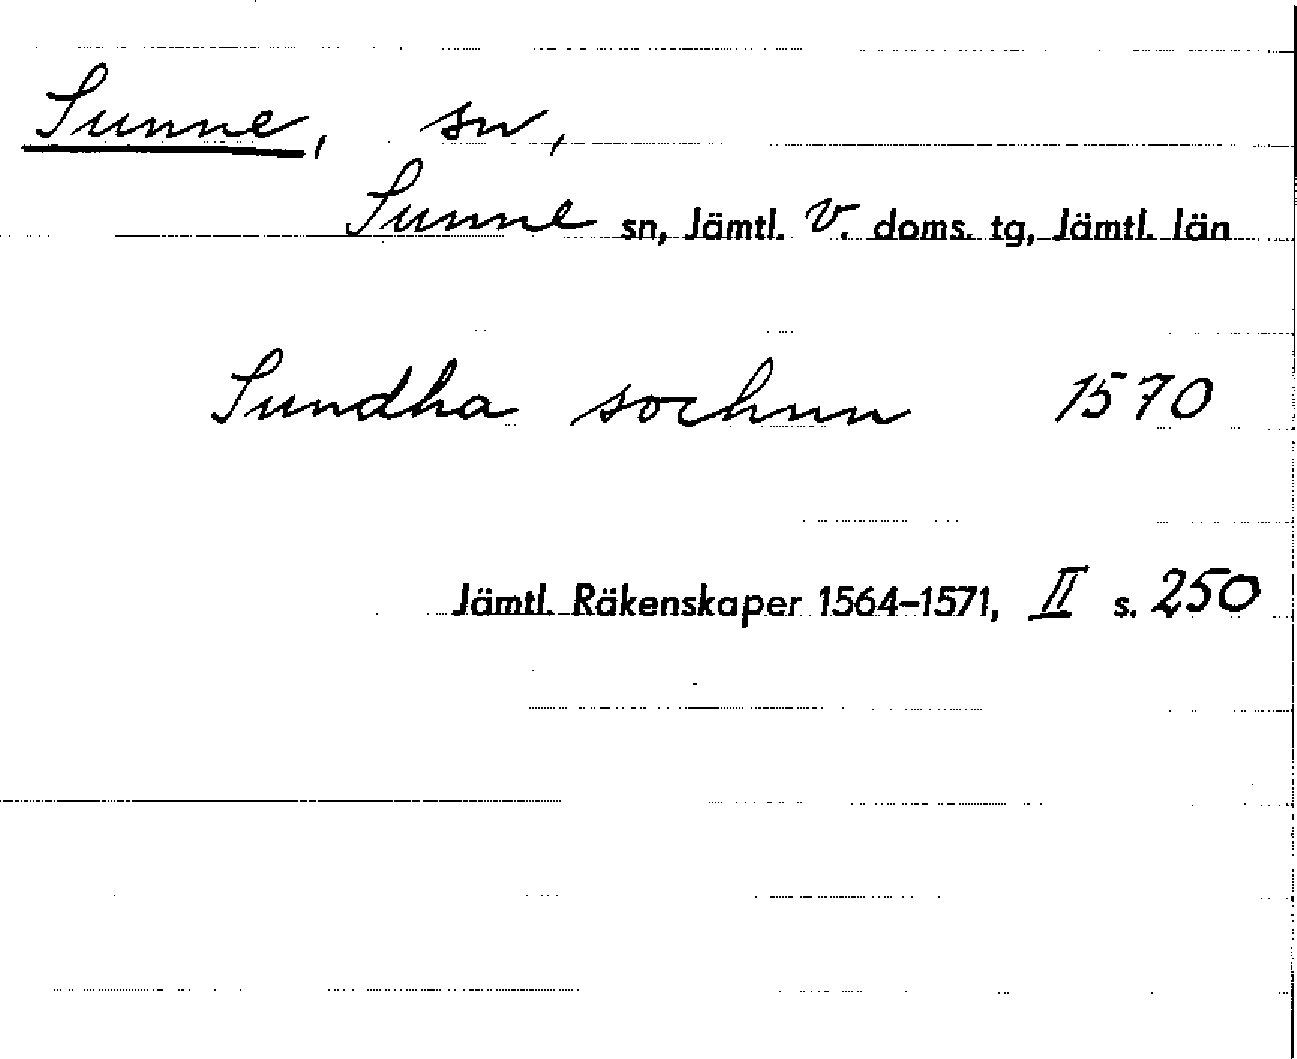 Sunne, sn,
Sunne sn, Jämtl. V. doms. tg, Jämtl. län
Sundha sochnn 1570
Jämtl. Räkenskaper 1564–1571, II s. 250